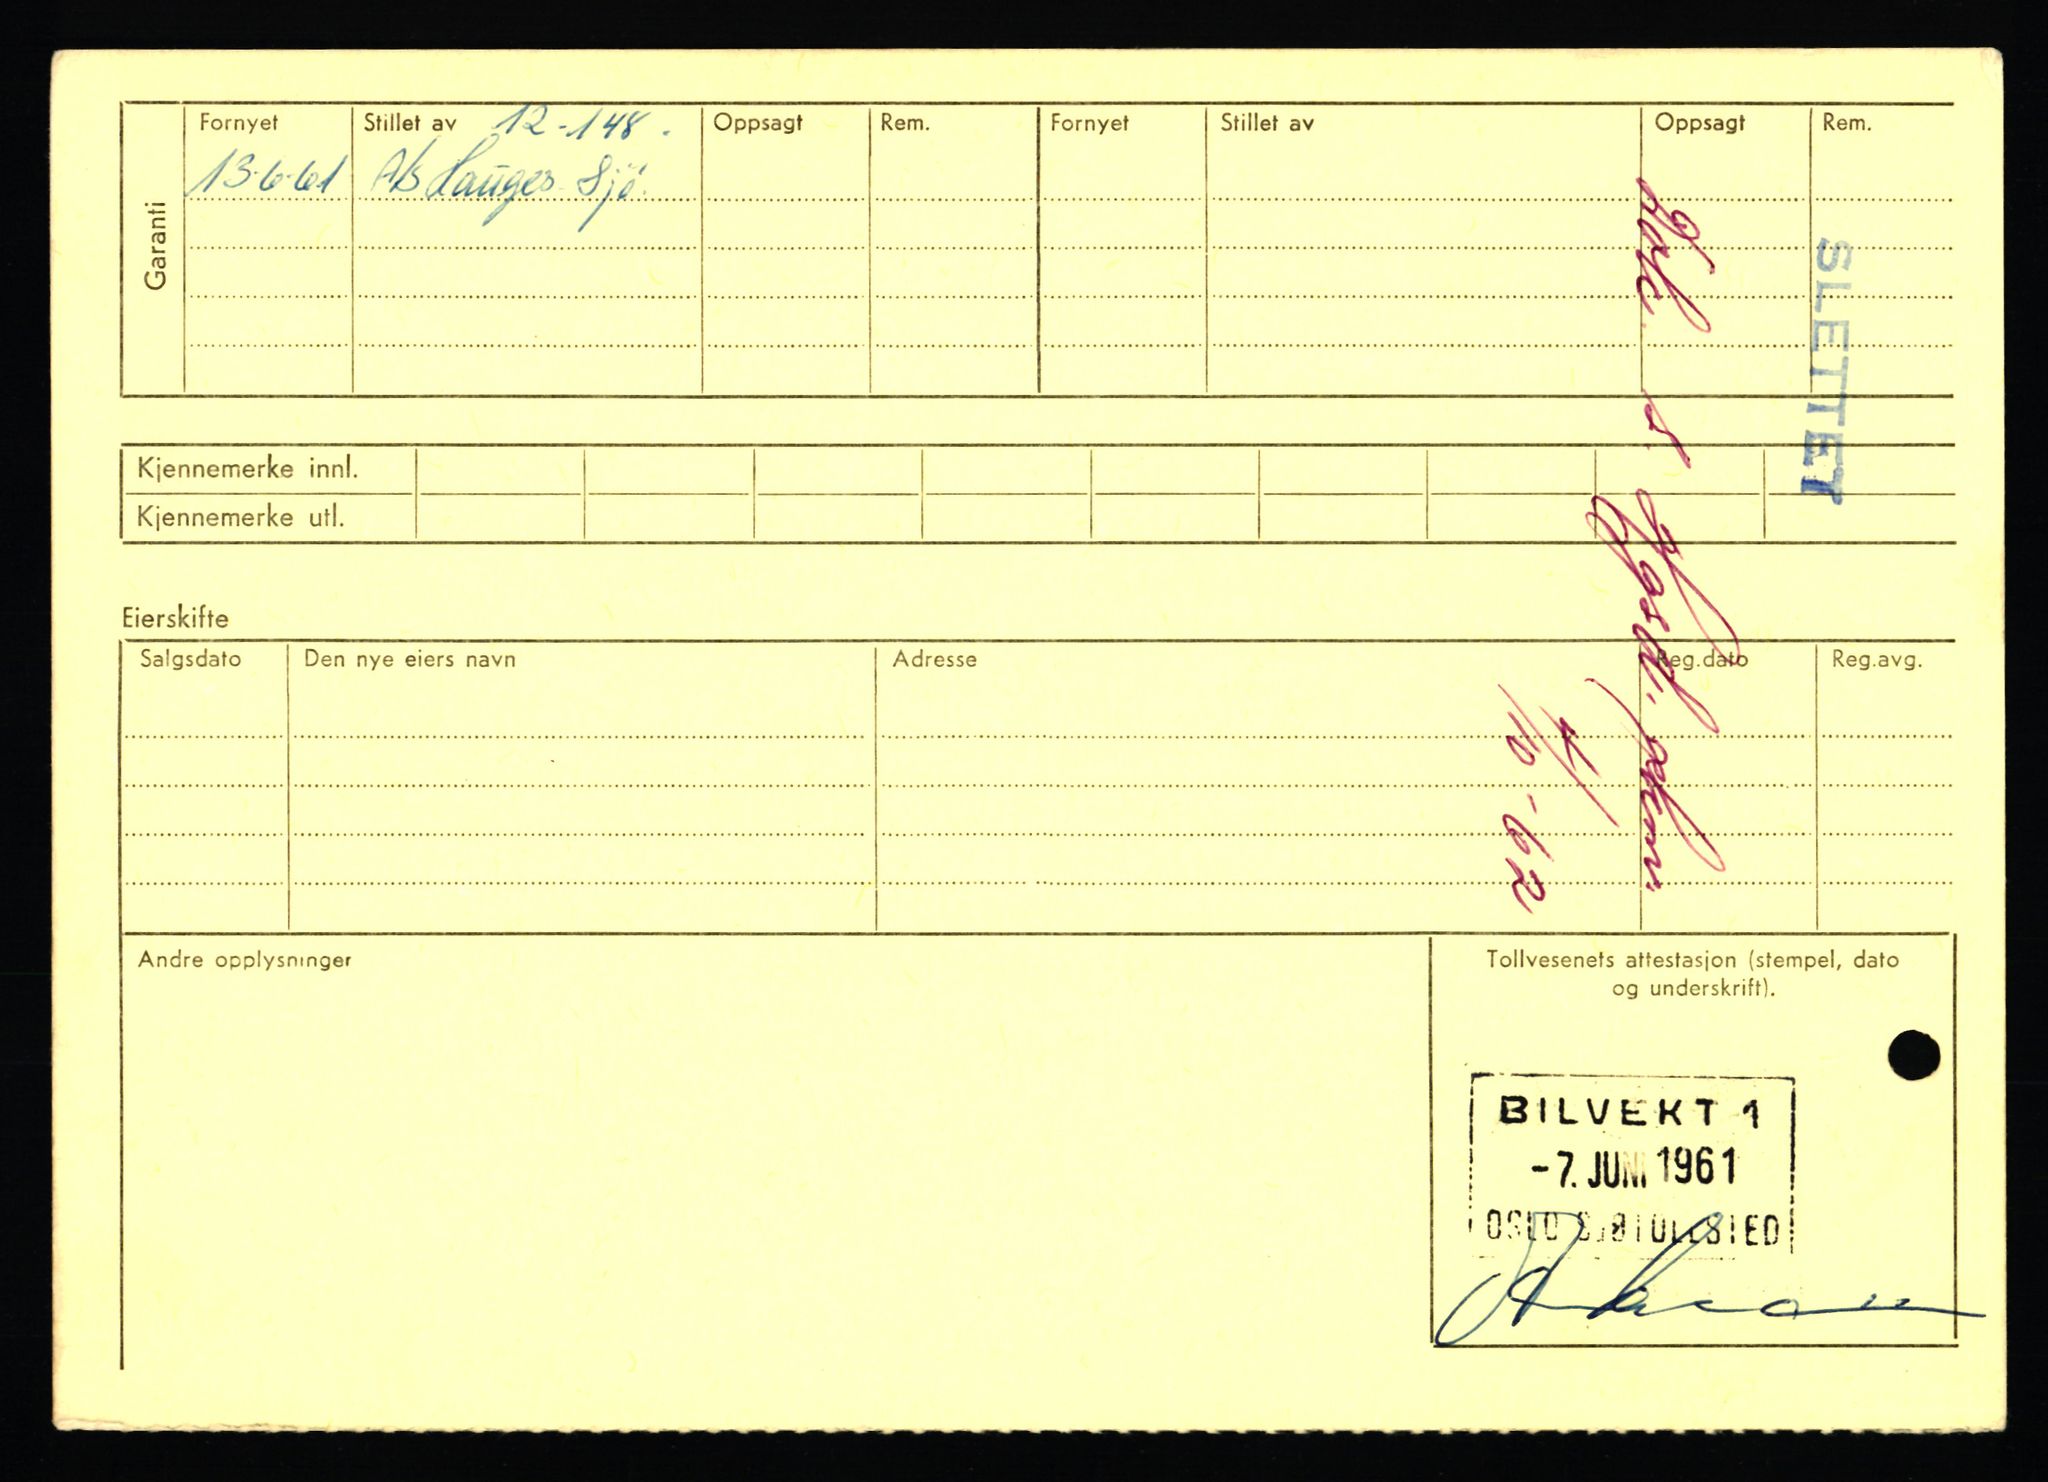 Garanti
Fornyet Stillet av 12-148. Oppsagt Rem. Fornyet Stillet av Oppsagt Rem.
13-6-61 A/S Hauges Sjö.
SLETTET
Kjennemerke innl.
Kjennemerke utl.
Eierskifte
Salgsdato Den nye eiers navn Adresse Reg.dato Reg.avg.
4/10-62
Andre opplysninger
Tollvesenets attestasjon (stempel, dato
og underskrift).
BILVEKT 1
-7. JUNI 1961
OSLO SJØTOLLSTED